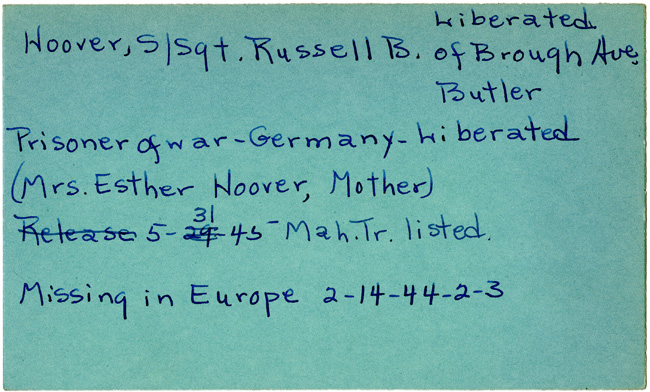 Liberated
Hoover, S/Sgt. Russell B. of Brough Ave,
Butler
Prisoner of war - Germany - Liberated
(Mrs. Esther Hoover, Mother)
Release 5-29-45 - Mah. Tr. listed.
31
Missing in Europe 2-14-44-2-3